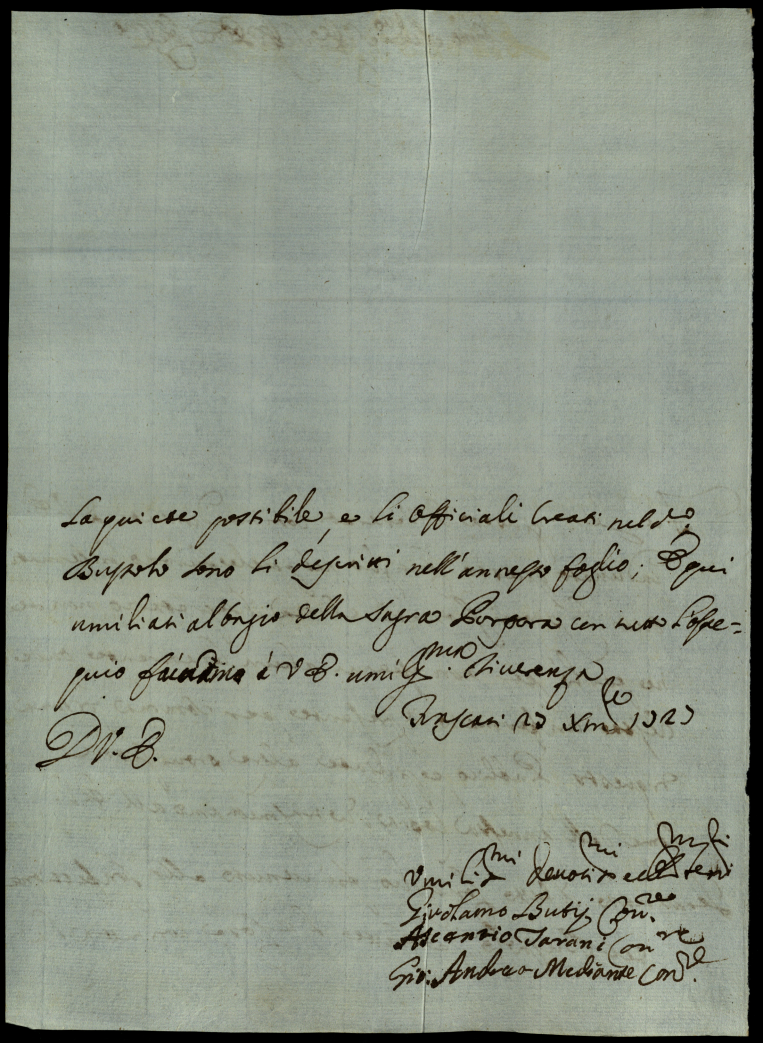 La quiete possibile, e li Officiali creati nel d.º
Bussolo sono li descritti nell'annesso foglio; E qui
umiliati al bagio della Sagra Porpora con tutto l'osse=
quio facciamo à V. E. umiliss.ma riverenza
Frascati 27 Xmbre 1727
D V. E.
Umiliss.mi Devotiss.mi
Girolamo Butij Con.re
Ascanio Tarani Con.re
Gio: Andrea Mediante Con.re